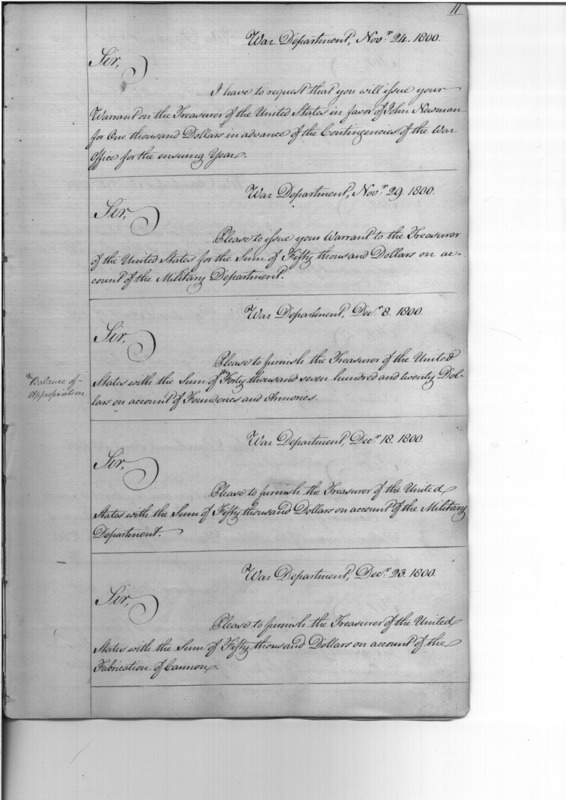 11
War Department, Novr. 24. 1800.
Sir,
I have to request that you will issue your
Warrant on the Treasurer of the United States in favor of John Newman
for One thousand Dollars in advance of the Contingencies of the War
Office for the ensuing Year.
War Department, Novr. 29. 1800.
Sir,
Please to issue your Warrant to the Treasurer
of the United States for the Sum of Fifty thousand Dollars on ac-
count of the Military Department.
War Department, Decr. 8. 1800.
Sir,
Please to furnish the Treasurer of the United
States with the Sum of Forty thousand seven hundred and twenty Dol-
lars on account of Founderies and Armories.
Balance of
Appropriation
War Department, Decr. 18. 1800.
Sir,
Please to furnish the Treasurer of the United
States with the Sum of Fifty thousand Dollars on account of the Military
Department.
War Department, Decr. 23. 1800.
Sir,
Please to furnish the Treasurer of the United
States with the Sum of Fifty thousand Dollars on account of the
Fabrication of Cannon.